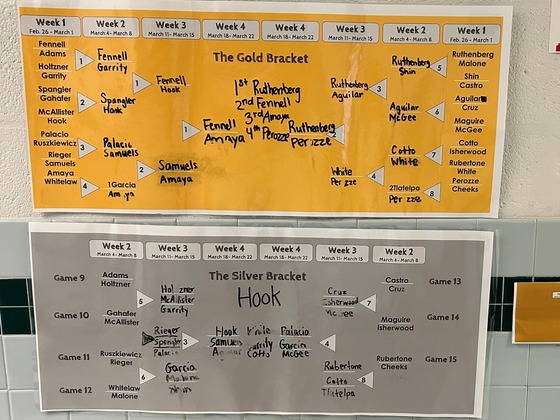 Week 1
Feb. 26 - March 1
Week 2
March 4- March 8
Week 3
March 11- March 15
Week 4
March 18- March 22
Week 4
March 18- March 22
Week 3
March 11- March 15
Week 2
March 4- March 8
Week 1
Feb. 26 - March 1
The Gold Bracket
Fennell
Adams
Holtzner
Garrity
Spangler
Gahafer
McAllister
Hook
Palacio
Ruszkiewicz
Rieger
Samuels
Amaya
Whitelaw
1
2
3
4
Fennell
Garrity
Spangler
Hook
Palacio
Samuels
1Garcia
Amaya
1
2
Fennell
Hook
Samuels
Amaya
1
Fennell
Amaya
1st Ruthenberg
2nd Fennell
3rd Amaya
4th Perozze
Ruthenberg
Perizze
Ruthenberg
Aguilar
White
Perizze
3
4
Ruthenberg
Shin
Aguilar
McGee
Cotto
White
2Tlatelpa
Perizze
5
6
7
8
Ruthenberg
Malone
Shin
Castro
Aguilar
Cruz
Maguire
McGee
Cotto
Isherwood
Rubertone
White
Perozze
Cheeks
Week 2
March 4- March 8
Week 3
March 11- March 15
Week 4
March 18- March 22
Week 4
March 18- March 22
Week 3
March 11- March 15
Week 2
March 4- March 8
The Silver Bracket
Hook
Game 9
Adams
Holtzner
Game 10
Gahafer
McAllister
Game 11
Ruszkiewicz
Rieger
Game 12
Whitelaw
Malone
5
6
Holtzner
McAllister
Garrity
Rieger
Spangler
Palacio
Garcia
3
Hook
Samuels
White
Garrity
Cotto
Palacio
Garcia
McGee
4
Cruz
Isherwood
McGee
Rubertone
Cotto
Tlatelpa
7
8
Castro
Cruz
Game 13
Maguire
Isherwood
Game 14
Rubertone
Cheeks
Game 15